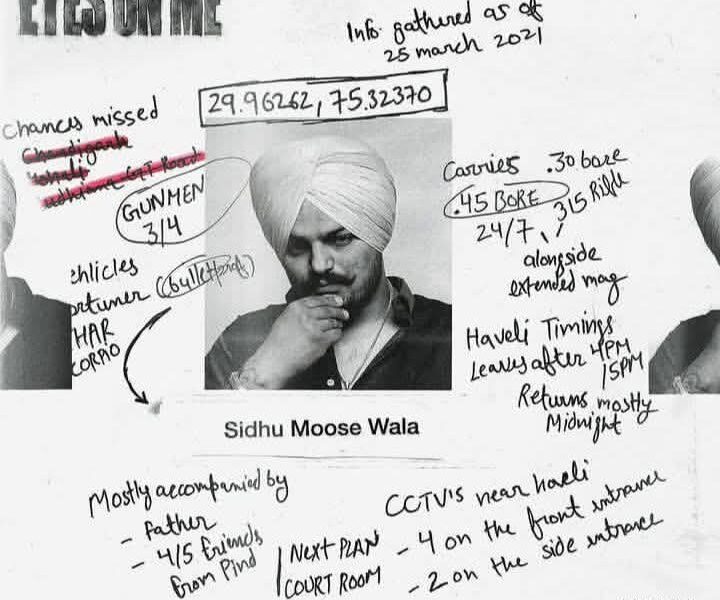 EYES ON ME
Info gathered as of
25 march 2021
29.96262, 75.32370
chances missed
Chandigarh
G.T Road
GUNMEN
3/4
ehlicles
ortuner (bulletproof)
HAR
Carries .30 bore
.45 BORE 315 Rifle
24/7
alongside
extended mag
Haveli Timings
Leaves after 4PM
/5PM
Returns mostly
Midnight
Sidhu Moose Wala
Mostly accompanied by
- Father
- 4/5 friends
from Pind
NEXT PLAN
COURT ROOM
CCTV's near haveli
- 4 on the front entrance
- 2 on the side entrance